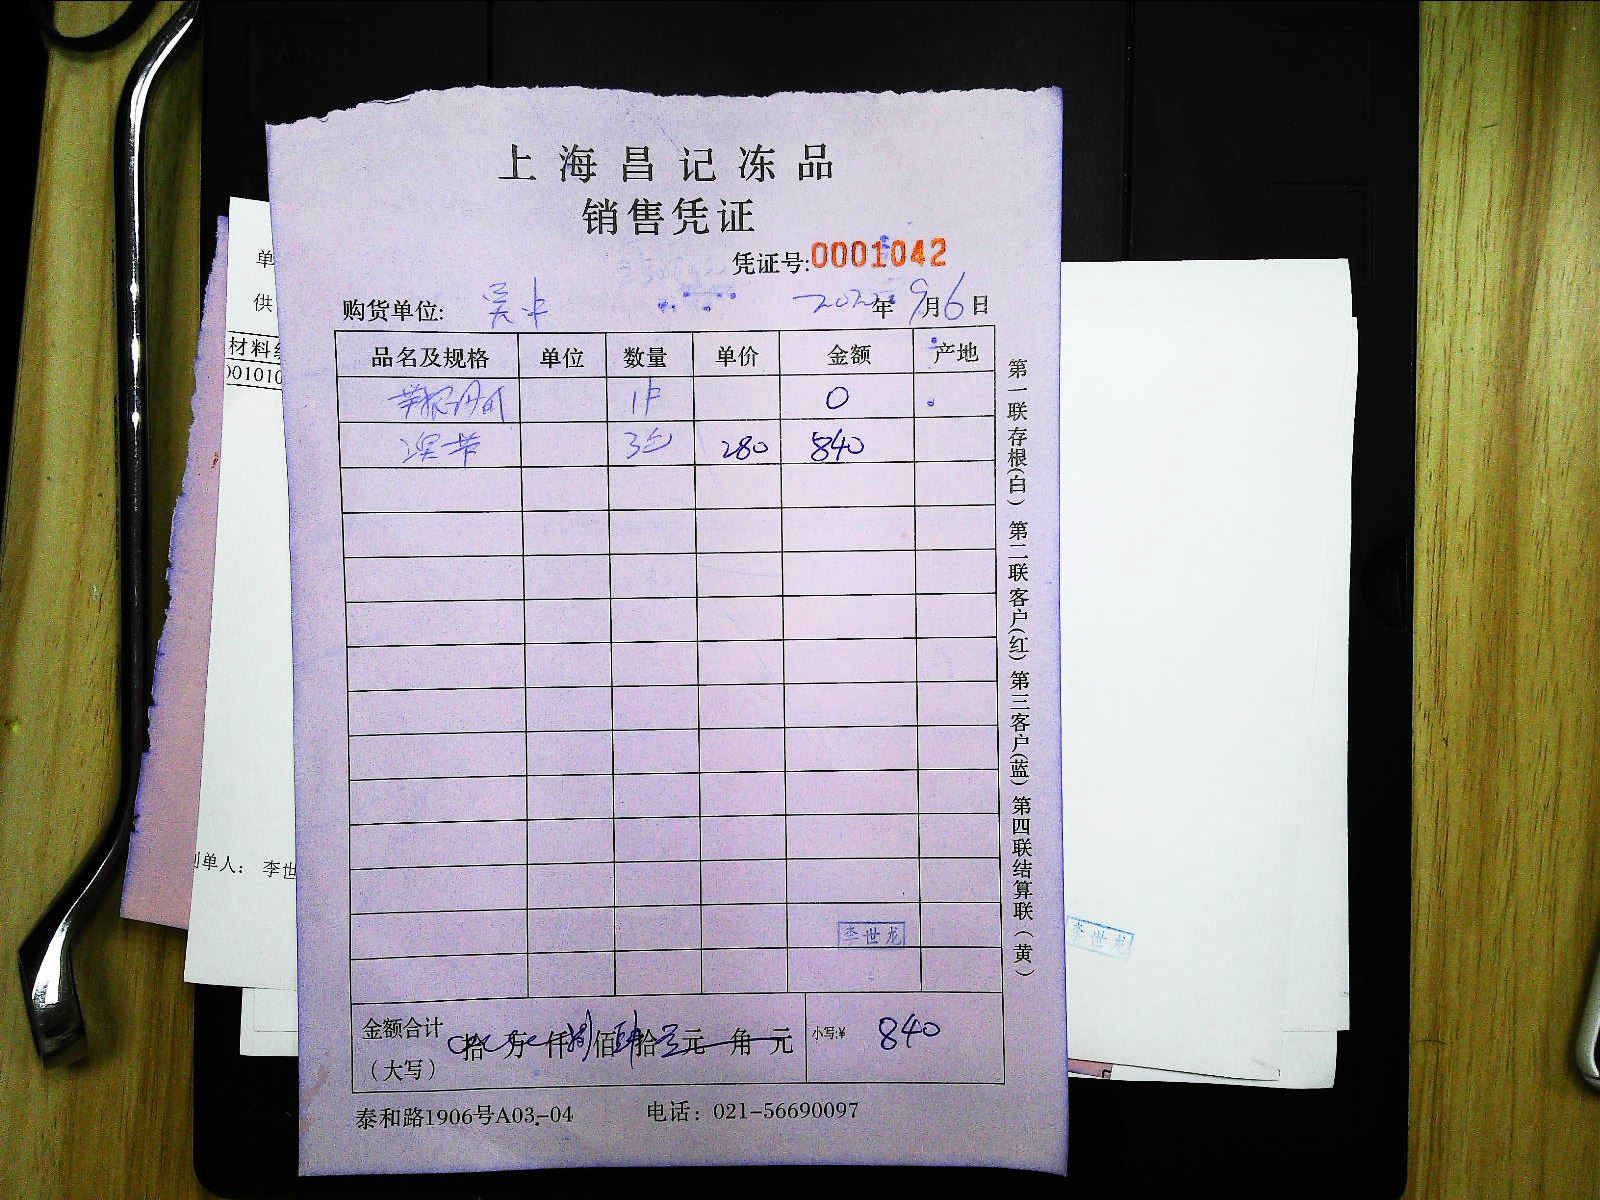 上海昌记冻品
销售凭证
凭证号:0001042
购货单位: 吴中 2022年9月6日
品名及规格 单位 数量 单价 金额 产地
1件 0
3包 280 840
李世龙
金额合计(大写) 拾 万 仟捌佰肆拾元 角 元 小写:¥ 840
泰和路1906号A03-04 电话：021-56690097
第一联存根(白) 第二联客户(红) 第三客户(蓝) 第四联结算联(黄)
单
供
材料
001010
制单人： 李世
李世龙